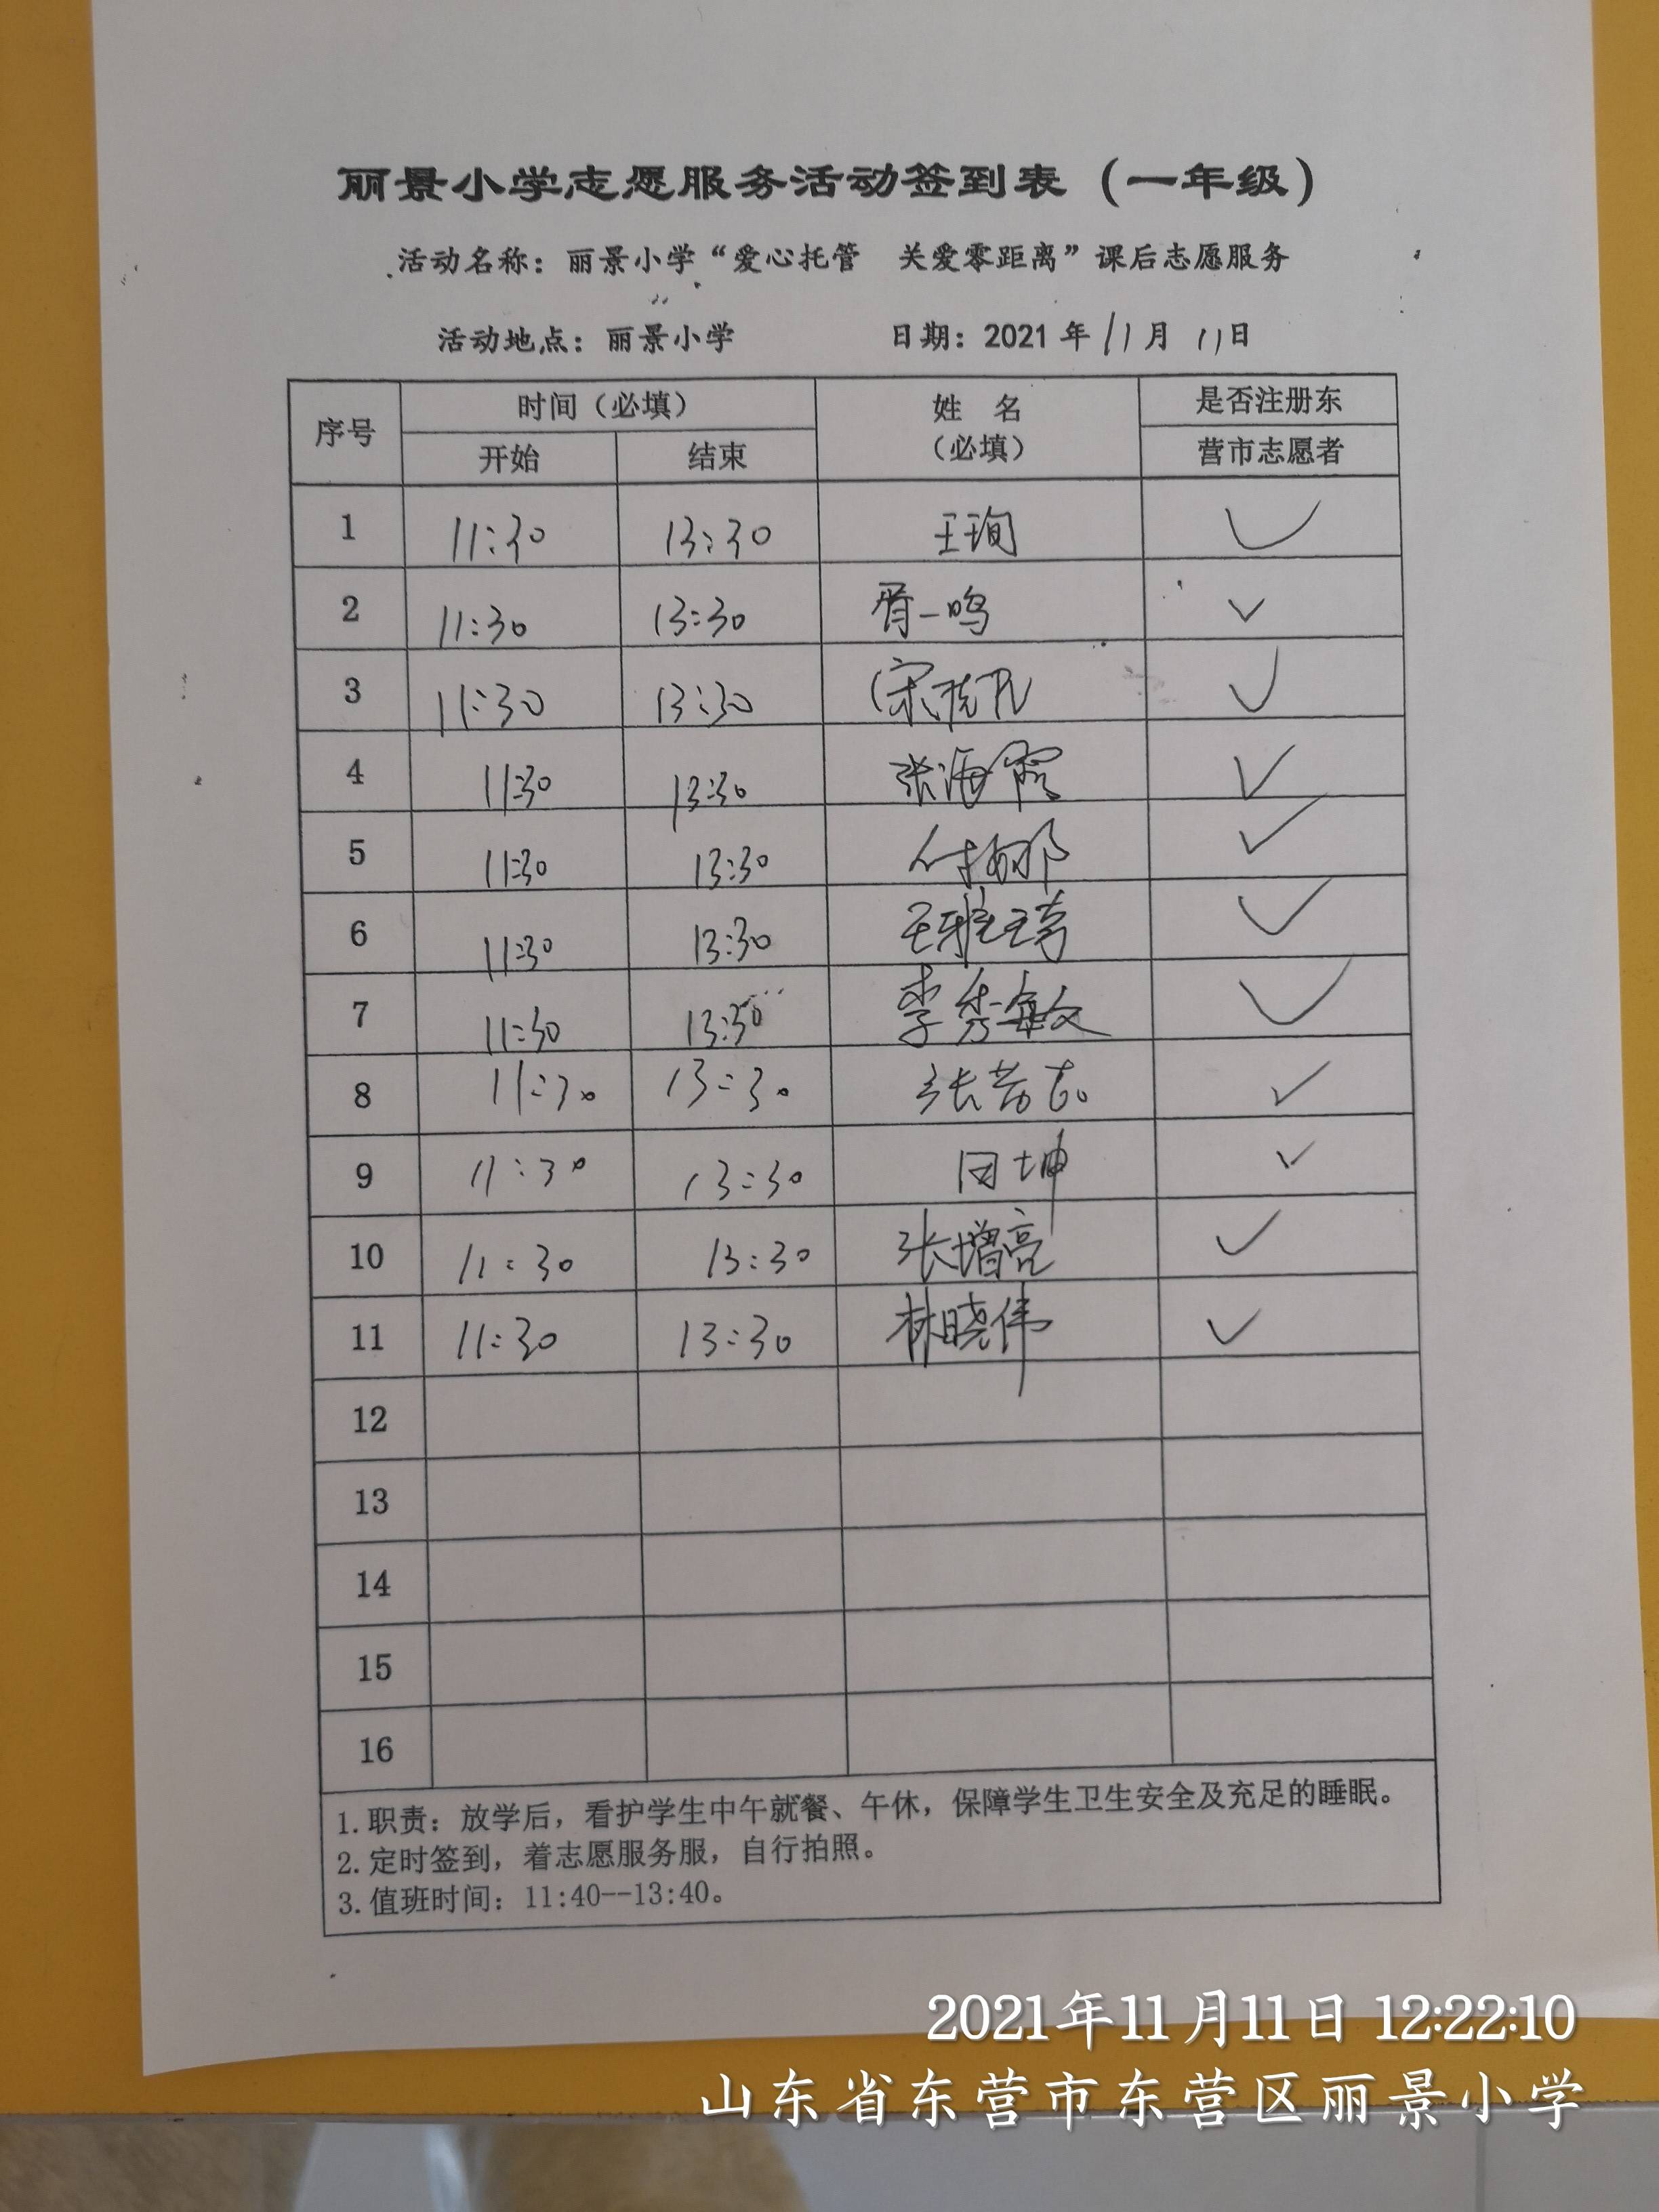 丽景小学志愿服务活动签到表（一年级）
活动名称：丽景小学“爱心托管 关爱零距离”课后志愿服务
活动地点：丽景小学 日期：2021 年 11 月 11 日
序号 时间（必填） 姓 名（必填） 是否注册东营市志愿者
开始 结束
1 11:30 13:30 王珣 ✓
2 11:30 13:30 胥一鸣 ✓
3 11:30 13:30 宋 ✓
4 11:30 13:30 张海霞 ✓
5 11:30 13:30 付娜 ✓
6 11:30 13:30 王雅琦 ✓
7 11:30 13:30 李秀敏 ✓
8 11:30 13:30 张芳 ✓
9 11:30 13:30 田坤 ✓
10 11:30 13:30 张增亮 ✓
11 11:30 13:30 林晓伟 ✓
12
13
14
15
16
1.职责：放学后，看护学生中午就餐、午休，保障学生卫生安全及充足的睡眠。
2.定时签到，着志愿服务服，自行拍照。
3.值班时间：11:40--13:40。
2021年11月11日 12:22:10
山东省东营市东营区丽景小学